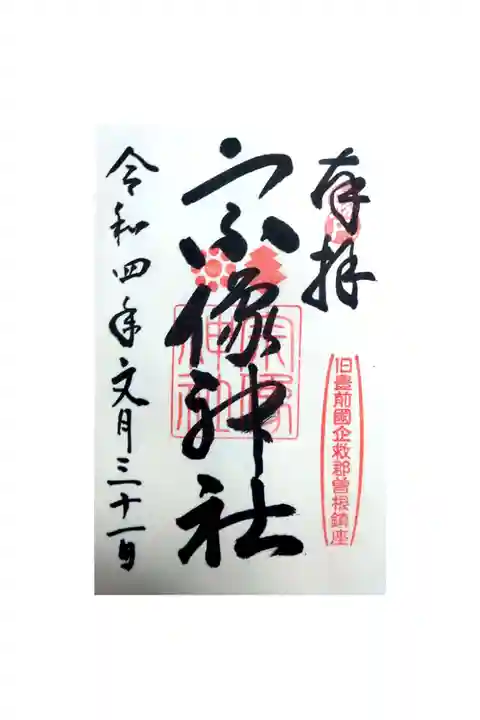 奉拝
旧豊前國企救郡曽根鎮座
宗像神社
宗像
神社
令和四年文月三十一日